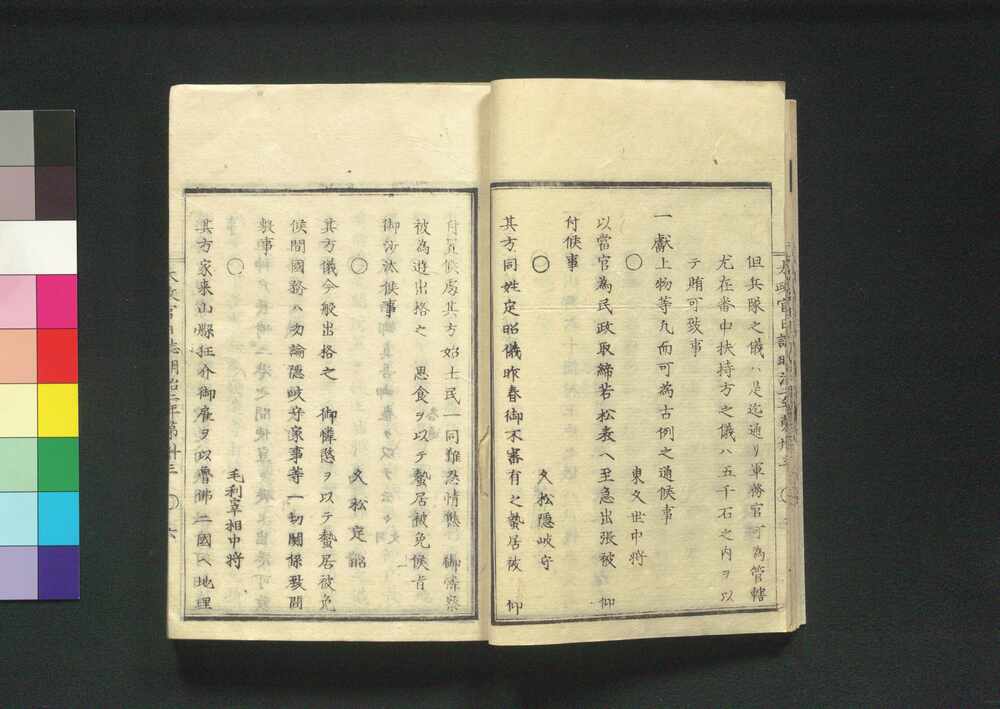 但兵隊之儀ハ是迄通リ軍務官可為管轄
尤在番中扶持方之儀ハ五千石之内ヲ以
テ賄可致事
一獻上物等凡而可為古例之通候事
〇　東久世中将
以當官為民政取締若松表ヘ至急出張被　仰
付候事
〇　久松隠岐守
其方同姓定昭儀昨春御不審有之蟄居被　仰
付置候處其方始士民一同難忍情態　御憐察
被為遊出格之　思食ヲ以テ蟄居被免候旨
御沙汰候事
〇　久松定昭
其方儀今般出格之　御憐愍ヲ以テ蟄居被免
候間國務ハ勿論隠岐守家事等一切關係致間
敷事
〇　毛利宰相中将
其方家来山縣狂介御雇ヲ以魯佛二國ヘ地理
太政官日誌明治二年第卅三　〇六